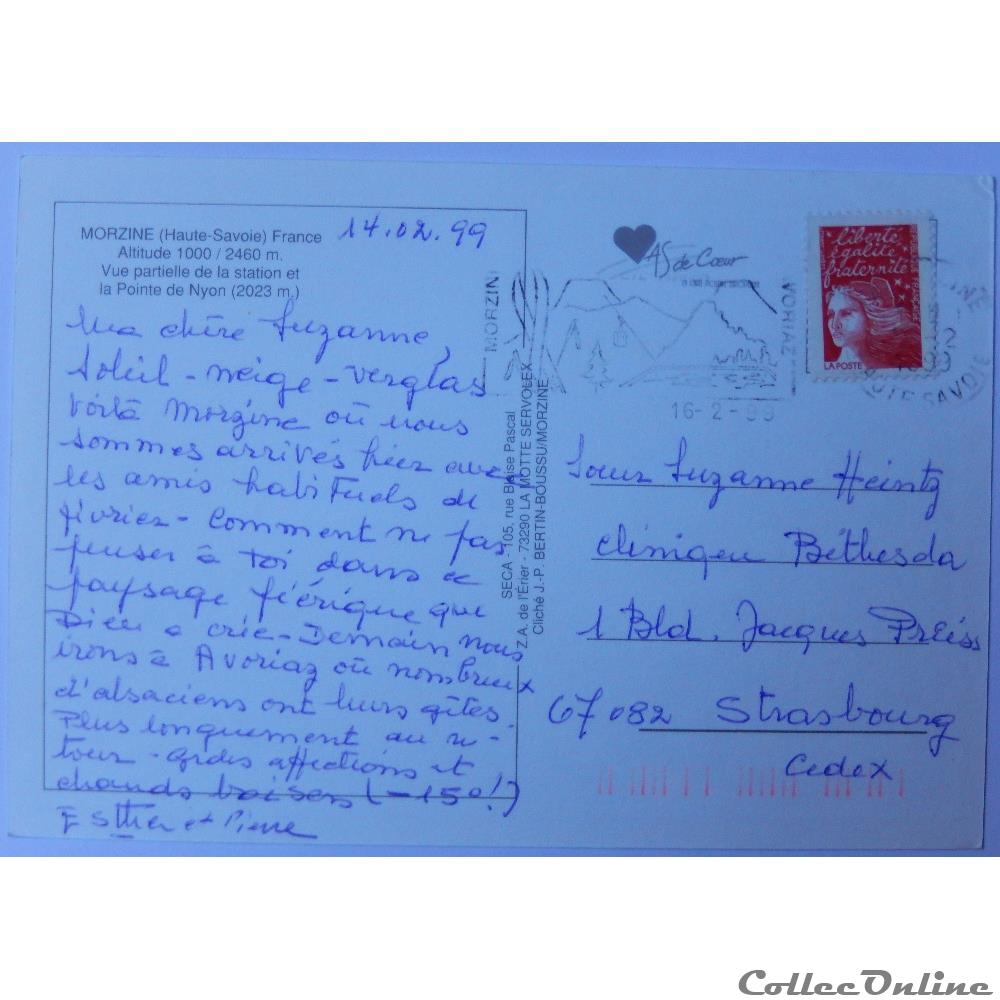 MORZINE (Haute-Savoie) France
Altitude 1000 / 2460 m.
Vue partielle de la station et
la Pointe de Nyon (2023 m.)
14.02.99
Ma chère Suzanne,
Soleil - neige - verglas
Voilà Morzine où nous
sommes arrivés hier avec
les amis habituels de
février - Comment ne pas
penser à toi dans ce
paysage féérique que
Dieu a crié - Demain nous
irons à Avoriaz où nombreux
d'alsaciens ont leurs gîtes.
Plus longuement au re-
tour - Grdes affections et
chauds baisers (-15°!)
Esther et Pierre
SECA - 105, rue Blaise Pascal
Z.A. de l'Érier - 73290 LA MOTTE SERVOLEX
Cliché J.-P. BERTIN-BOUSSU/MORZINE
MORZINE
AS de Cœur
AVORIAZ
16-2-99
liberté
égalité
fraternité
LA POSTE
HAUTE SAVOIE
Soeur Suzanne Heintz
cliniqeu Béthesda
1 Bld. Jacques PREiss
67082 Strasbourg
Cedex
CollecOnline